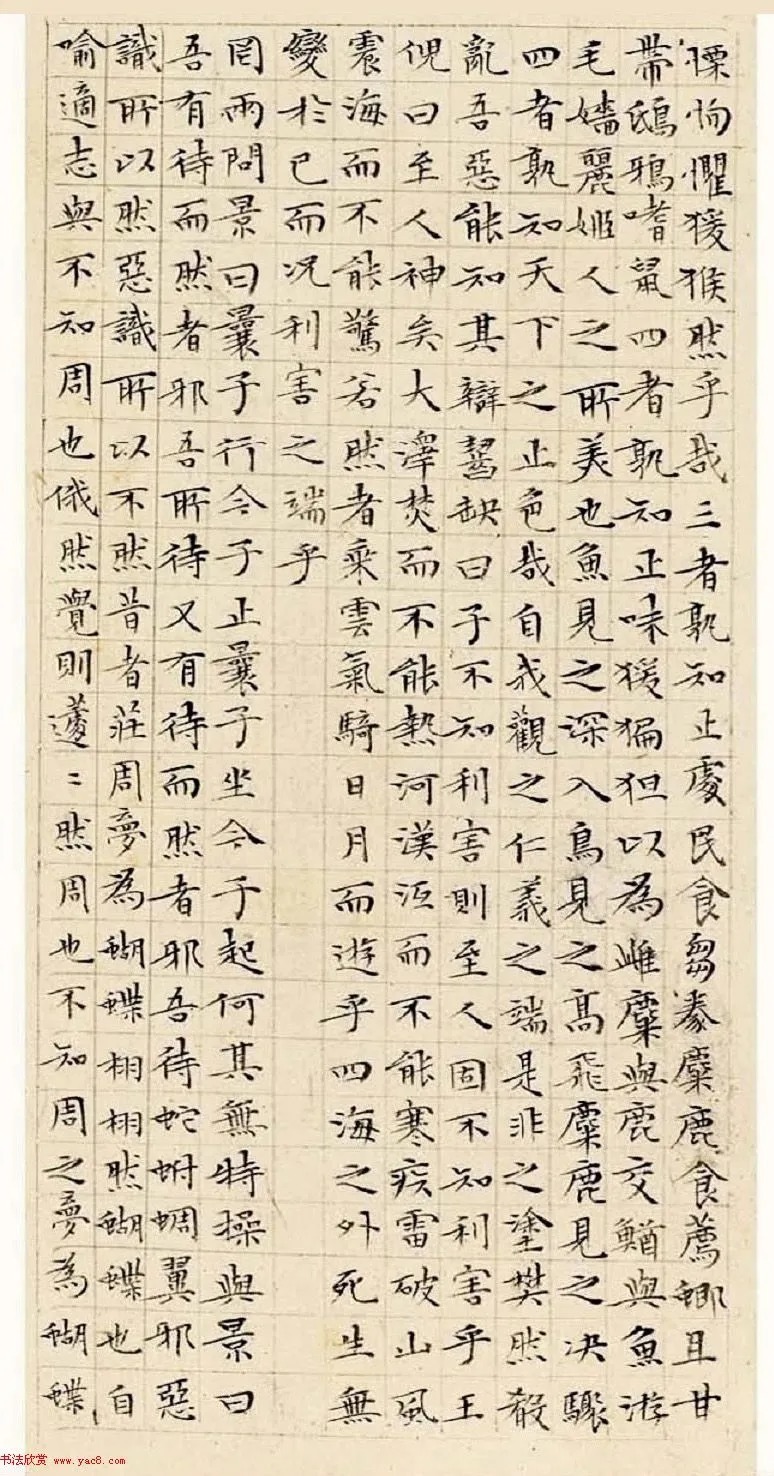 慄恂懼猨猴然乎哉三者孰知正處民食芻豢麋鹿食薦蝍且甘
帶鴟鴉嗜鼠四者孰知正味猨猵狙以為雌麋與鹿交鰌與魚游
毛嬙麗姬人之所美也魚見之深入鳥見之高飛麋鹿見之决驟
四者孰知天下之正色哉自我觀之仁義之端是非之塗樊然殽
亂吾惡能知其辯齧缺曰子不知利害則至人固不知利害乎王
倪曰至人神矣大澤焚而不能熱河漢沍而不能寒疾雷破山風
震海而不能驚若然者乘雲氣騎日月而遊乎四海之外死生無
變於已而况利害之端乎
罔兩問景曰曩子行今子止曩子坐今子起何其無特操與景曰
吾有待而然者邪吾所待又有待而然者邪吾待蛇蚹蜩翼邪惡
識所以然惡識所以不然昔者莊周夢為蝴蝶栩栩然蝴蝶也自
喻適志與不知周也俄然覺則蘧〻然周也不知周之夢為蝴蝶
书法欣赏 www.yac8.com